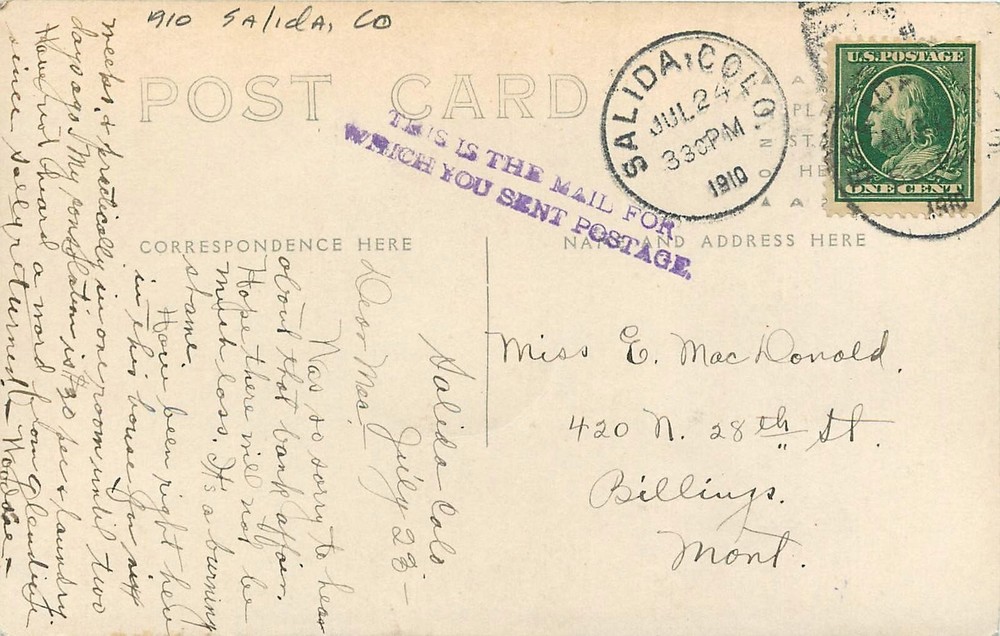 1910 Salida, CO
POST CARD
THIS IS THE MAIL FOR
WHICH YOU SENT POSTAGE.
SALIDA, COLO.
JUL 24
330PM
1910
U.S. POSTAGE
ONE CENT
1910
CORRESPONDENCE HERE
NAME AND ADDRESS HERE
Miss E. MacDonald.
420 N. 28th St.
Billings.
Mont.
Salida - Colo
July 23 -
Dear Mac! -
Was so sorry to hear
about that bank affair.
Hope there will not be
much loss. It's a burning
shame.
Have been right here
in this house for six
weeks, & practically in one room until two
days ago. My consolation is $30 per & laundry.
Have not heard a word from
since Sally returned! -